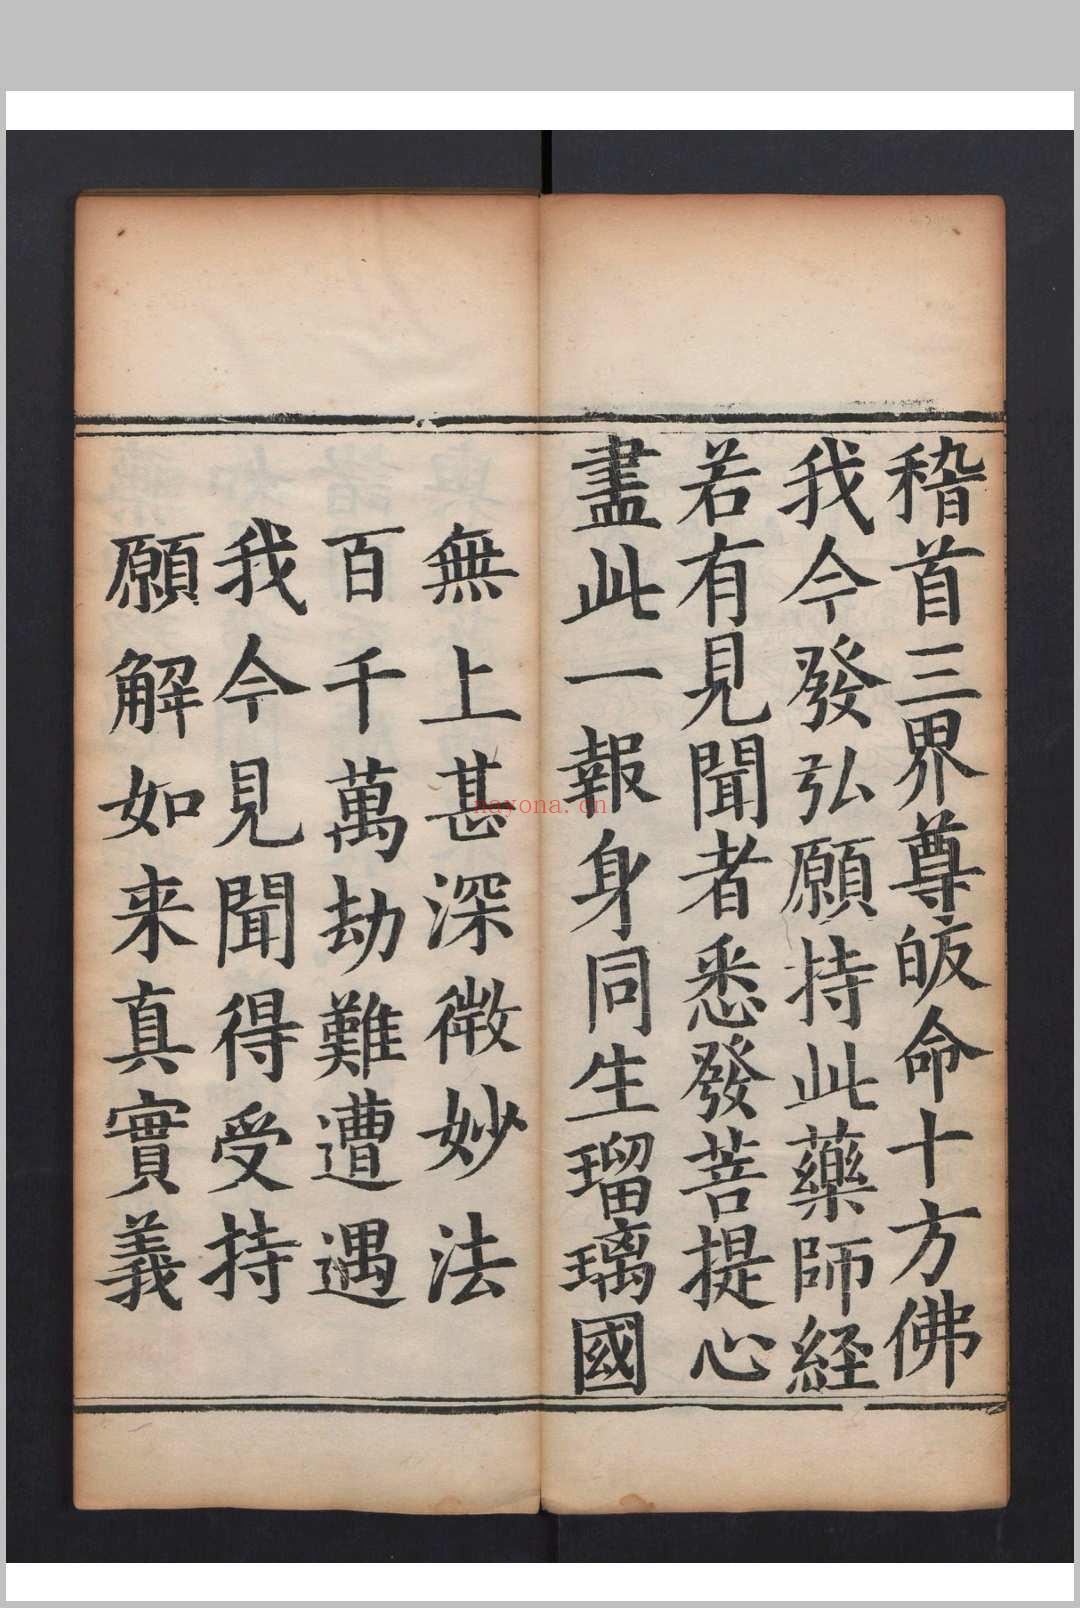 稽首三界尊皈命十方佛
我今發弘願持此藥師經
若有見聞者悉發菩提心
盡此一報身同生瑠璃國
無上甚深微妙法
百千萬劫難遭遇
我今見聞得受持
願解如来真實義
nayona.cn